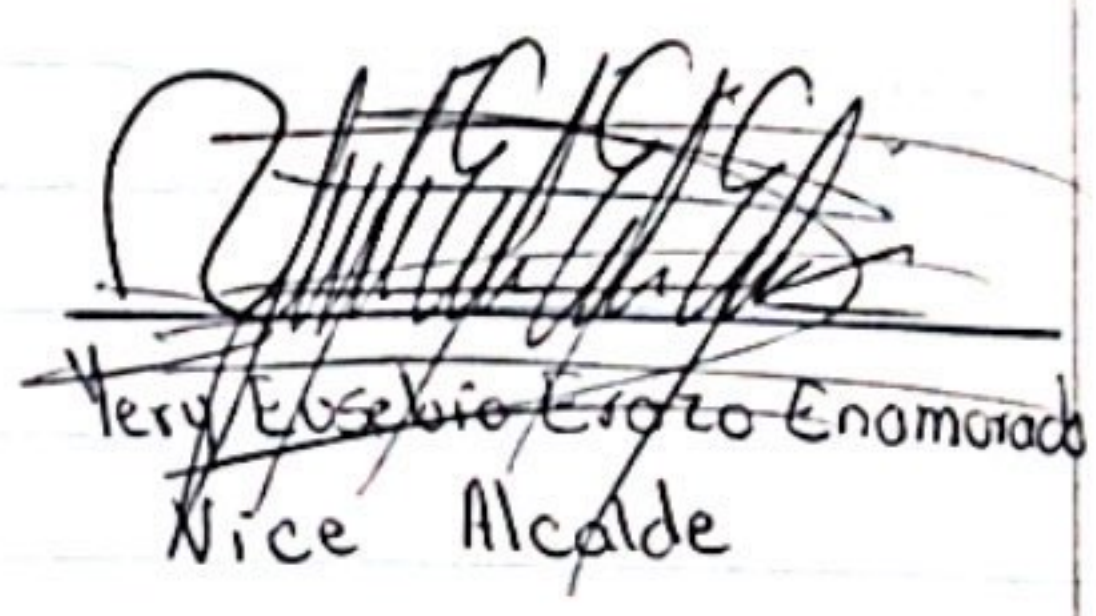 Yery Eusebio Erazo Enamorado
Nice Alcalde